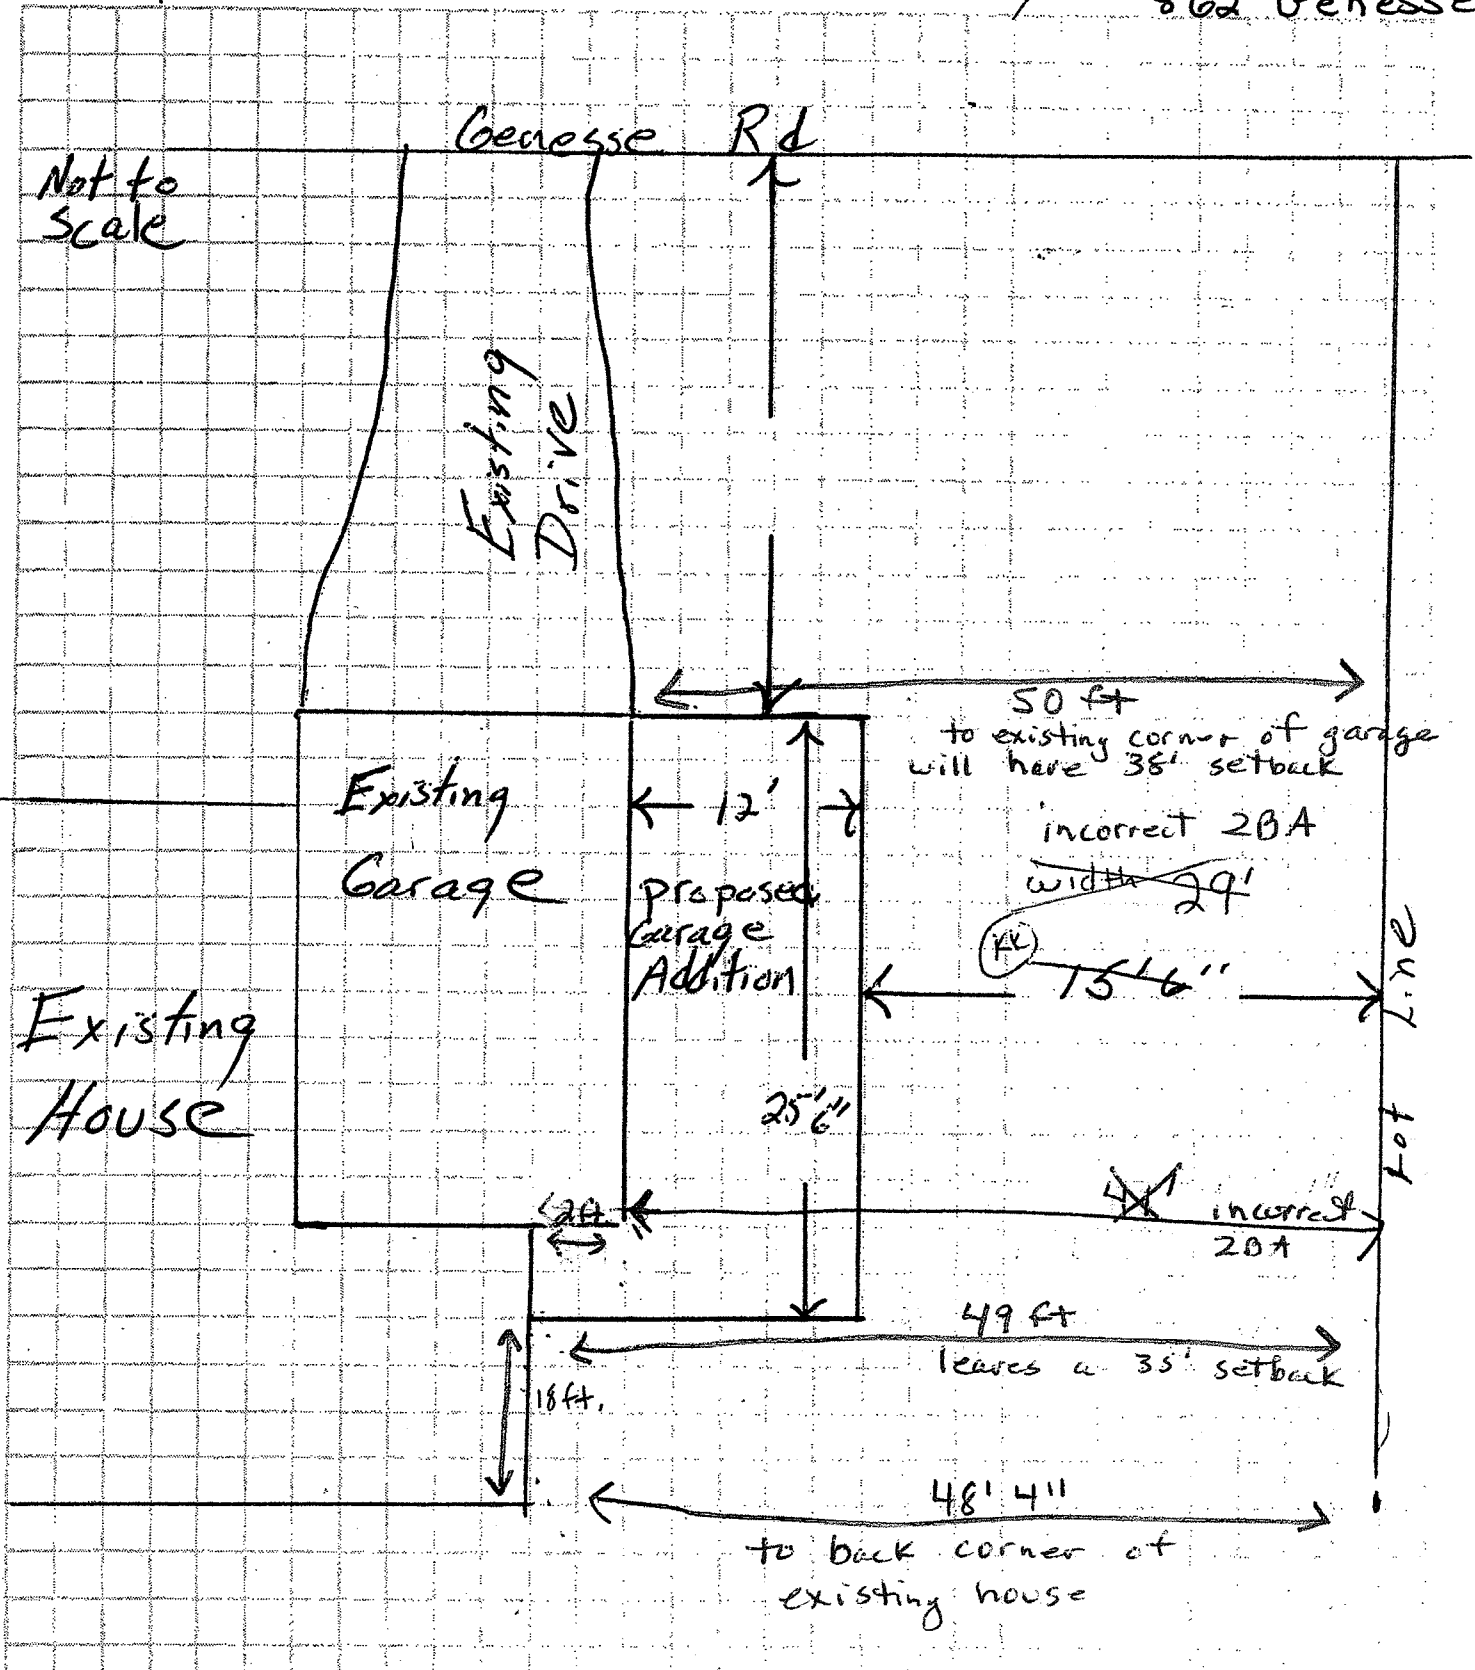 862 Genesse
Genesse Rd
Not to
Scale
Existing
Drive
50 ft
to existing corner of garage
will have 38' setback
Existing
Garage
12'
incorrect ZBA
width 29'
proposed
Garage
Addition
KK
15'6"
Lot Line
Existing
House
25'6"
2ft.
41'
incorrect
ZBA
49 ft
leaves a 35' setback
18ft.
48' 4"
to back corner of
existing house